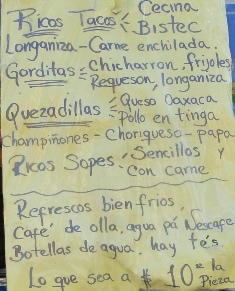 Cecina
Ricos Tacos Bistec
Longaniza - Carne enchilada.
Gorditas = Chicharron, frijoles
Requeson, longaniza
Quezadillas = Queso Oaxaca
Pollo en tinga
Champiñones - Choriqueso - papa
Ricos Sopes: Sencillos y
con carne
Refrescos bien frios,
Café de olla, agua pá Nescafe
Botellas de agua. hay tés.
Lo que sea a $ 10.= la
Pieza